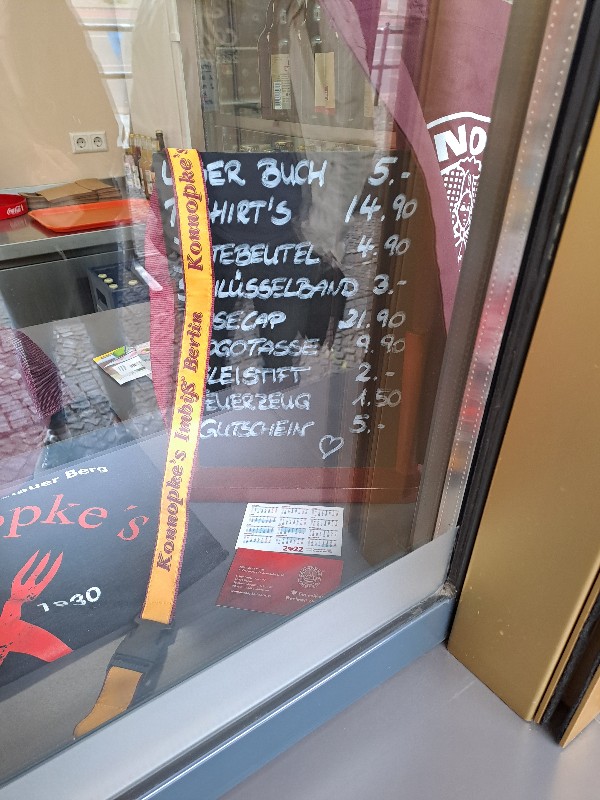 NO
ER BUCH 5.-
HIRT'S 14.90
TEBEUTEL 4.90
LÜSSELBAND 3.-
SECAP 21.90
OGOTASSE 9.90
LEISTIFT 2.-
EUERZEUG 1.50
GUTSCHEIN 5.-
Konnopke's Imbiß Berlin Konnopke's
auer Berg
opke's
1930
2022